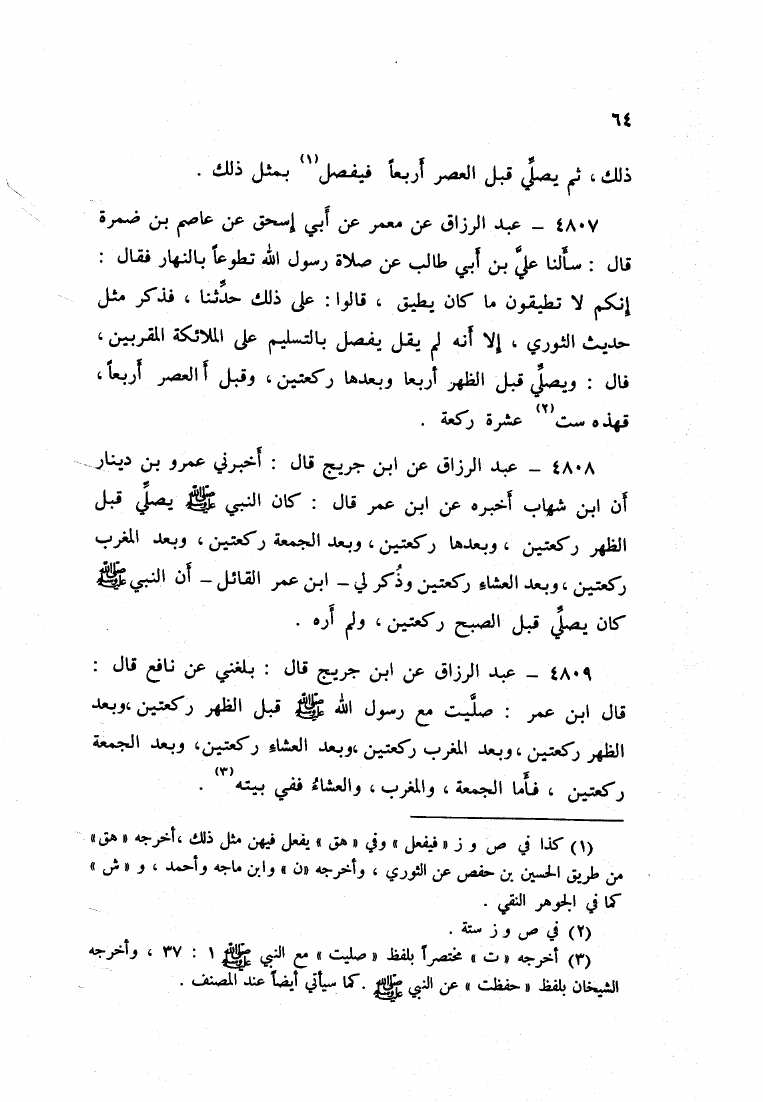 ٦٤
ذلك ، ثم يصلِّي قبل العصر أربعاً فيفصل(١) بمثل ذلك .
٤٨٠٧ – عبد الرزاق عن معمر عن أبي إسحق عن عاصم بن ضمرة
قال : سألنا عليَّ بن أبي طالب عن صلاة رسول الله تطوعاً بالنهار فقال :
إنكم لا تطيقون ما كان يطيق ، قالوا : على ذلك حدِّثنا ، فذكر مثل
حديث الثوري ، إلا أنه لم يقل يفصل بالتسليم على الملائكة المقربين ،
قال : ويصلِّي قبل الظهر أربعا وبعدها ركعتين ، وقبل أالعصر أربعاً ،
قهذه ست(٢) عشرة ركعة .
٤٨٠٨ – عبد الرزاق عن ابن جريج قال : أخبرني عمرو بن دينار
أن ابن شهاب أخبره عن ابن عمر قال : كان النبي ﷺ يصلِّي قبل
الظهر ركعتين ، وبعدها ركعتين ، وبعد الجمعة ركعتين ، وبعد المغرب
ركعتين ، وبعد العشاء ركعتين وذُكر لي – ابن عمر القائل – أن النبي ﷺ
كان يصلِّي قبل الصبح ركعتين ، ولم أره .
٤٨٠٩ – عبد الرزاق عن ابن جريج قال : بلغني عن نافع قال :
قال ابن عمر : صلَّيت مع رسول الله ﷺ قبل الظهر ركعتين ،وبعد
الظهر ركعتين ، وبعد المغرب ركعتين ،وبعد العشاء ركعتين، وبعد الجمعة
ركعتين ، فأما الجمعة ، والمغرب ، والعشاءُ ففي بيته(٣) .
(١) كذا في ص و ز « فيفعل » وفي « هق » يفعل فيهن مثل ذلك ،أخرجه « هق»
من طريق الحسين بن حفص عن الثوري ، وأخرجه «ن » وابن ماجه وأحمد ، و « ش »
كما في الجوهر النقي .
(٢) في ص و ز ستة .
(٣) أخرجه « ت » مختصراً بلفظ « صليت » مع النبي ﷺ ١ : ٣٧ ، وأخرجه
الشيخان بلفظ « حفظت » عن النبي ﷺ . كما سيأتي أيضاً عند المصنف .